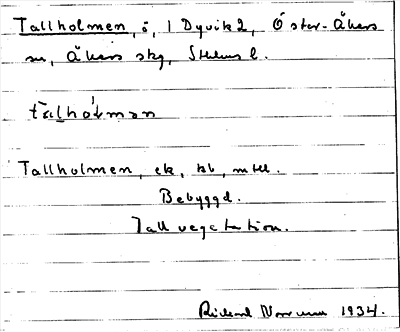 Tallholmen, ö, 1 Dyvik 2, Öster-Åkers
sn, Åkers skg, Sthlms l.
talhòlmən
Tallholmen, ek, kb, mtll.
Bebyggd.
Tallvegetation.
Rickard 1934.